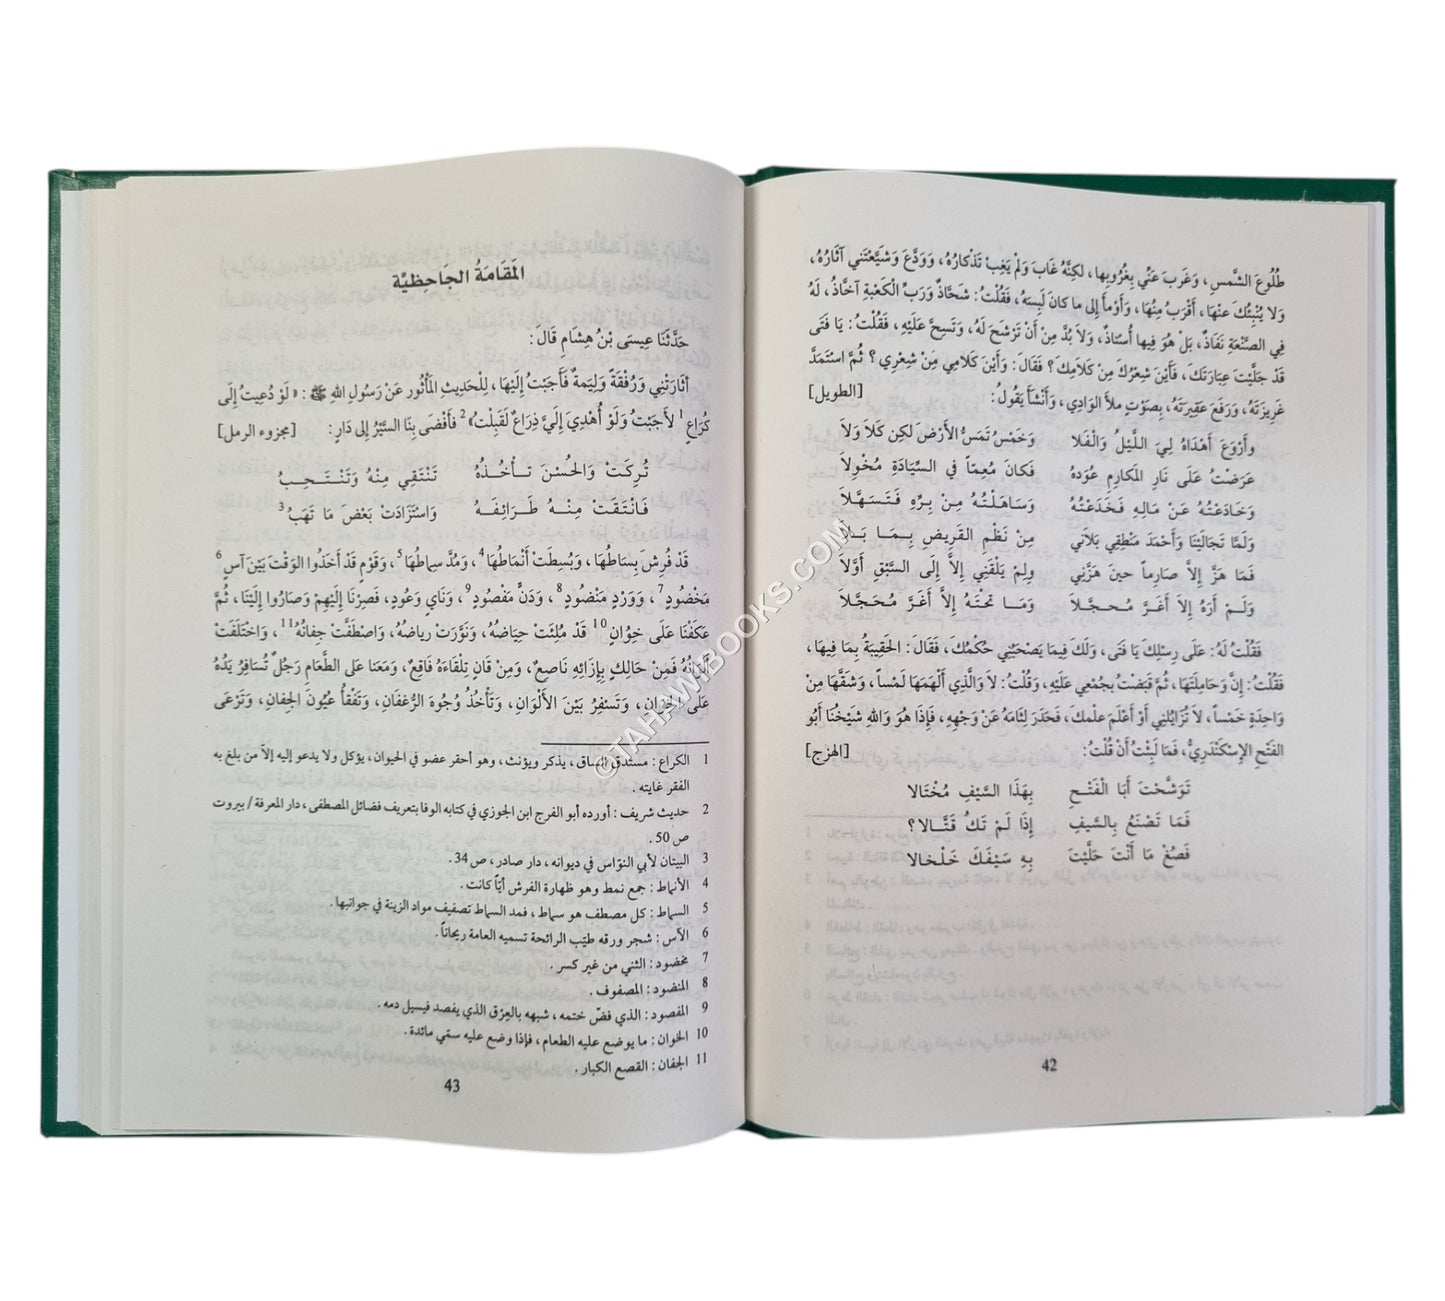 طُلُوعَ الشَّمْسِ، وَغَرَبَ عَنِّي بِغُرُوبِها، لَكِنَّهُ غَابَ وَلَمْ يَغِبْ تَذْكارُهُ، وَوَدَّعَ وَشَيَّعَتْني آثارُهُ،
وَلا يُنْبِئُكَ عَنْهَا، أَقْرَبُ مِنْهَا، وَأَوْمأَ إِلى ما كانَ لَبِسَهُ، فَقُلْتُ: شَحَّاذٌ وَرَبِّ الْكَعْبَةِ آخَّاذٌ، لَهُ
فِي الصَّنْعَةِ نَفَاذٌ، بَلْ هُوَ فِيها أُسْتَاذٌ، وَلاَ بُدَّ مِنْ أَنْ تَرْشَحَ لَهُ، وَتَسِحَّ عَلَيْهِ، فَقُلْتُ: يَا فَتَى
قَدْ جَلَّيْتَ عِبَارَتَكَ، فَأَيْنَ شِعْرُكَ مِنْ كَلامِكَ؟ فَقَالَ: وَأَيْنَ كَلامِي مِنْ شِعْرِي؟ ثُمَّ اسْتَمَدَّ
غَرِيزَتَهُ، وَرَفَعَ عَقِيرَتَهُ، بِصَوْتٍ مَلأَ الْوَادِي، وَأَنْشأَ يَقُولُ: [الطويل]
وَأَرْوَعَ أَهْدَاهُ لِيَ اللَّيْلُ وَالْفَلا وَخَمْسٌ تَمَسُّ الأَرْضَ لكِن كَلاَ وَلاَ
عَرَضْتُ عَلَى نَارِ المَكارِمِ عُودَهُ فَكانَ مُعِمّاً في السِّيَادَةِ مُخْوِلاَ
وَخَادَعْتُهُ عَنْ مَالِهِ فَخَدَعْتُهُ وَسَاهَلْتُهُ مِنْ بِرِّهِ فَتَسَهَّلاَ
وَلَمَّا تَجَالَيْنَا وَأَحْمَدَ مَنْطِقِي بَلاَنِي مِنْ نَظْمِ القَرِيضِ بِمَا بَلاَ
فَمَا هَزَّ إِلاَّ صَارِماً حينَ هَزَّنِي ولمْ يَلْقَنِي إِلاَّ إِلَى السَّبْقِ أَوَّلاَ
وَلَمْ أَرَهُ إِلاَ أَغَرَّ مُحجلاَ وَمَا تَحْتَهُ إِلاَّ أَغَرَّ مُحَجَّلاَ
فَقُلْتُ لَهُ: عَلَى رِسْلِكَ يَا فَتَى، وَلَكَ فِيمَا يَصْحَبُنِي حُكْمُكَ، فَقَالَ: الحَقِيبَةُ بِمَا فِيهَا،
فَقُلْتُ: إِنَّ وَحَامِلَتَهَا، ثُمَّ قَبَضْتُ بِجُمْعِي عَلَيْهِ، وَقُلْتُ: لاَ وَالَّذِي أَلْهَمَهَا لَمْساً، وَشَقَّهَا مِنْ
وَاحِدَةٍ خَمْساً، لاَ تُزَايِلُنِي أَوْ أَعْلَمَ عِلْمَكَ، فَحَدَرَ لِثَامَهُ عَنْ وَجْهِهِ، فَإِذَا هُوَ وَاللهِ شَيْخُنَا أَبُو
الفَتْحِ الإِسْكَنْدَرِيُّ، فَمَا لَبِثْتُ أَنْ قُلْتُ: [الهزج]
تَوَشَّحْتَ أَبَا الْفَتْحِ بِهَذَا السَّيْفِ مُخْتَالا
فَمَا تَصْنَعُ بِالسَّيفِ إِذَا لَمْ تَكُ قَتَّالا؟
فَصُغْ مَا أَنْتَ حَلَّيْتَ بِهِ سَيْفَكَ خَلْخالا
42
المَقَامَةُ الجاحِظيَّة
حَدَّثَنَا عِيسَى بْنُ هِشَامٍ قَالَ:
أَثَارَتْنِي وَرُفْقَةً وَلِيمَةٌ فَأَجَبْتُ إِلَيْهَا، لِلْحَدِيثِ المَأْثُورِ عَنْ رَسُولِ اللهِ ﷺ: «لَوْ دُعِيتُ إِلَى
كُرَاعٍ 1 لأَجَبْتُ وَلَوْ أُهْدِيَ إِلَيَّ ذِرَاعٌ لَقَبِلْتُ» 2 فَأَفْضَى بِنَا السَّيْرُ إِلى دَارٍ: [مجزوء الرمل]
تُرِكَتْ وَالحُسْنَ تَأْخُذُهُ تَنْتَقِي مِنْهُ وَتَنْتَحِبُ
فَانْتَقَتْ مِنْهُ طَرَائِفَهُ وَاسْتَزَادَتْ بَعْضَ مَا تَهَبُ 3
قَدْ فُرِشَ بِسَاطُهَا، وَبُسِطَتْ أَنْمَاطُهَا 4، وَمُدَّ سِماطُهَا 5، وَقَوْمٍ قَدْ أَخَذُوا الوَقْتَ بَيْنَ آسٍ 6
مَخْضُودٍ 7، وَوَرْدٍ مَنْضُودٍ 8، وَدَنٍّ مَفْصُودٍ 9، وَنَايٍ وَعُودٍ، فَصِرْنَا إِلَيْهِمْ وَصَارُوا إِلَيْنَا، ثُمَّ
عَكَفْنَا عَلَى خِوَانٍ 10 قَدْ مُلِئَتْ حِيَاضُهُ، وَنَوَّرَتْ رِيَاضُهُ، وَاصْطَفَّتْ جِفَانُهُ 11، وَاخْتَلَفَتْ
أَلْوَانُهُ فَمِنْ حَالِكٍ بِإِزَائِهِ نَاصِعٌ، وَمِنْ قَانٍ تِلْقَاءَهُ فَاقِعٌ، وَمَعَنا عَلى الطَّعَامِ رَجُلٌ تُسَافِرُ يَدُهُ
عَلَى الخِوَانِ، وَتَسْفِرُ بَيْنَ الأَلْوَانِ، وَتَأْخُذُ وُجُوهَ الرُّغْفَانِ، وَتَفْقأُ عُيُونَ الجِفَانِ، وَتَرْعَى
1 الكراع: مستدق الساق، يذكر ويؤنث، وهو أحقر عضو في الحيوان، يؤكل ولا يدعو إليه إلاّ من بلغ به
الفقر غايته.
2 حديث شريف: أورده أبو الفرج ابن الجوزي في كتابه الوفا بتعريف فضائل المصطفى، دار المعرفة/بيروت
ص 50.
3 البيتان لأبي النوّاس في ديوانه، دار صادر، ص 34.
4 الأنماط: جمع نمط وهو ظهارة الفرش أيّاً كانت.
5 السماط: كل مصطف هو سماط، فمد السماط تصفيف مواد الزينة في جوانبها.
6 الآس: شجر ورقه طيّب الرائحة تسميه العامة ريحاناً.
7 مخضود: الثني من غير كسر.
8 المنضود: المصفوف.
9 المفصود: الذي فضّ ختمه، شبهه بالعِرْق الذي يفصد فيسيل دمه.
10 الخوان: ما يوضع عليه الطعام، فإذا وضع عليه سمّي مائدة.
11 الجفان: القصع الكبار.
43
©TAHAWIBOOKS.COM